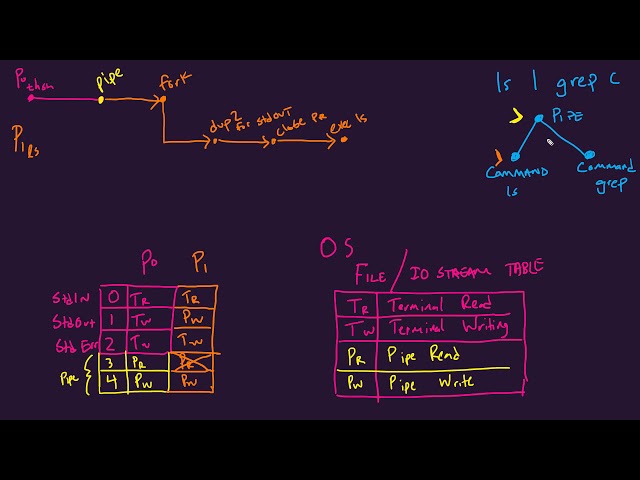 P0 thsh
pipe
fork
dup2 for stdout
close PR
exec ls
P1 ls
ls | grep c
PIPE
COMMAND ls
Command grep
P0 P1
StdIN 0 TR TR
StdOut 1 TW PW
Std Err 2 TW TW
Pipe
3 PR PR
4 PW PW
OS
FILE / IO STREAM TABLE
TR Terminal Read
TW Terminal Writing
PR Pipe Read
PW Pipe Write